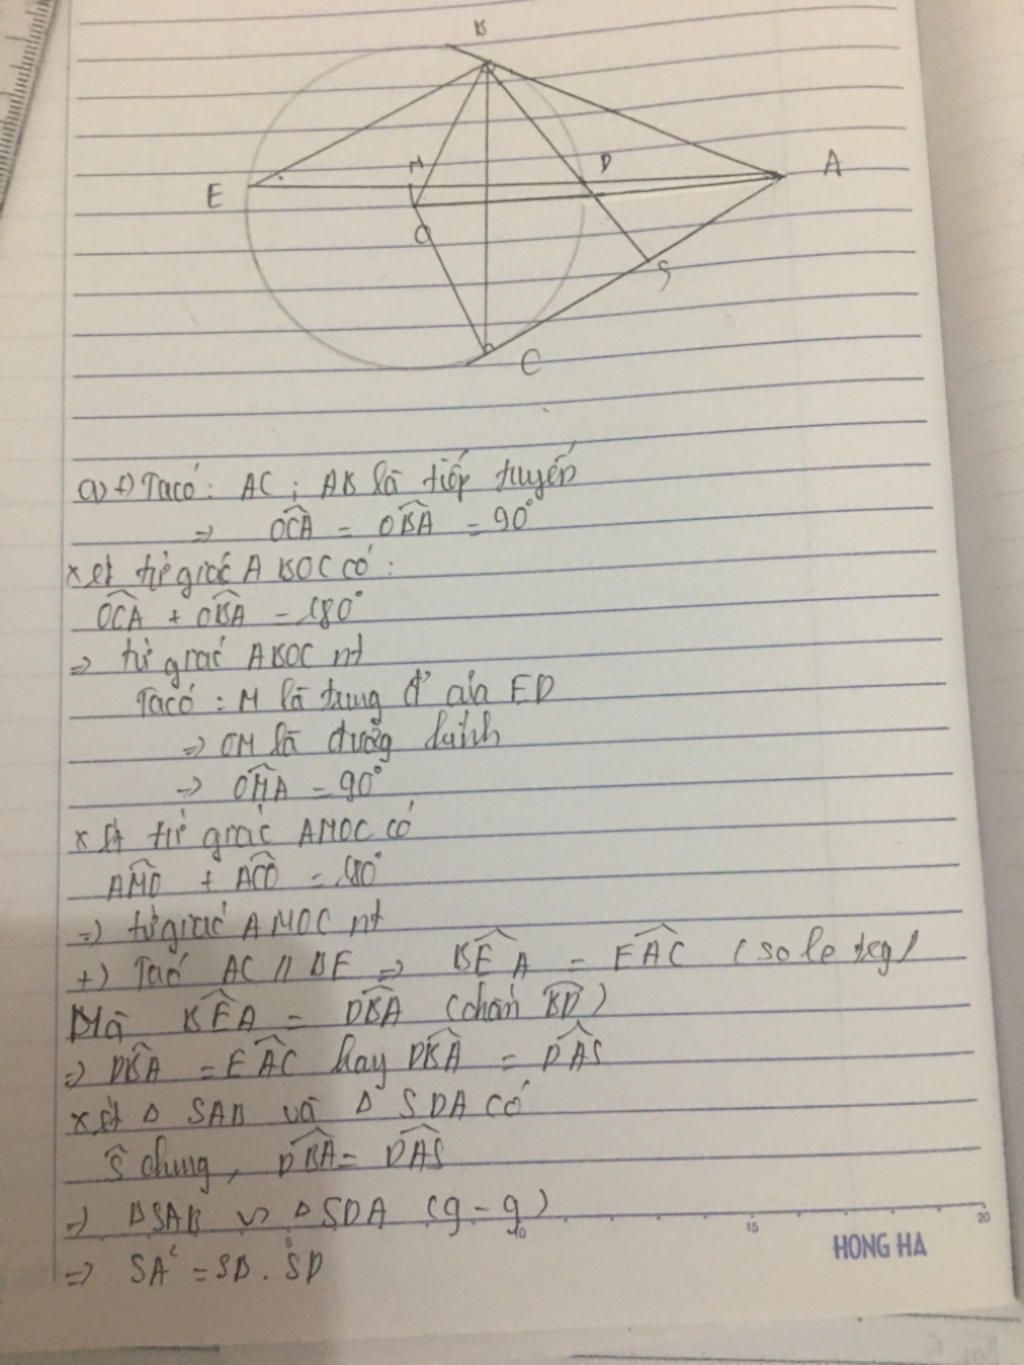 B
M
D
A
E
O
S
C
a) +) Ta có : AC ; AB là tiếp tuyến
=> OCA = OBA = 90°
xét tứ giác ABOC có :
OCA + OBA = 180°
=> tứ giác ABOC nt
Ta có : M là trung đ' của ED
=> OM là đường
=> OMA = 90°
xét tứ giác AMOC có
AMO + ACO = 180°
=> tứ giác AMOC nt
+) Ta có AC // BE => BEA = EAC (so le trg)
Mà BEA = DBA (chắn BD)
=> DBA = EAC hay DBA = DAS
xét Δ SAB và Δ SDA có
S chung, DBA = DAS
=> ΔSAB ∽ ΔSDA (g-g)
=> SA² = SB . SD
5 10 15 20
HONG HA